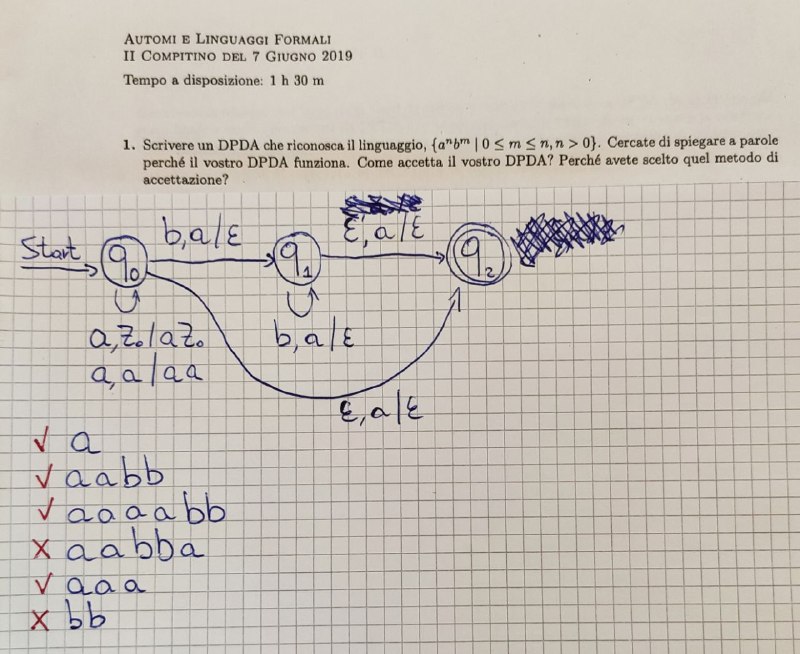 AUTOMI E LINGUAGGI FORMALI
II COMPITINO DEL 7 GIUGNO 2019
Tempo a disposizione: 1 h 30 m
1. Scrivere un DPDA che riconosca il linguaggio, {aⁿbᵐ | 0 ≤ m ≤ n, n > 0}. Cercate di spiegare a parole
perché il vostro DPDA funziona. Come accetta il vostro DPDA? Perché avete scelto quel metodo di
accettazione?
Start q₀ b,a/ε q₁ ε,a/ε q₂
a,Z₀/aZ₀ b,a/ε
a,a/aa
ε,a/ε
✓ a
✓ aabb
✓ aaaabb
x aabba
✓ aaa
x bb